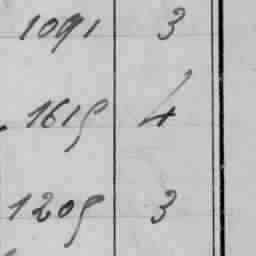 1091 3
1615 4
1205 3